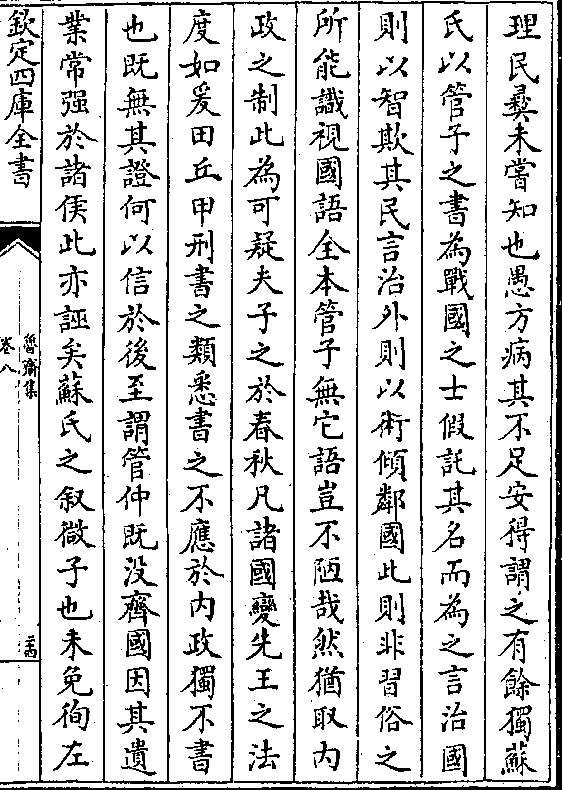 理民彛未嘗知也愚方病其不足安得謂之有餘獨蘇
氏以管子之書為戰國之士假託其名而為之言治國
則以智欺其民言治外則以術傾鄰國此則非習俗之
所能識視國語全本管子無它語豈不陋哉然猶取内
政之制此為可疑夫子之於春秋凡諸國變先王之法
度如爰田丘甲刑書之類悉書之不應於内政獨不書
也既無其證何以信於後至謂管仲既没齊國因其遺
業常强於諸侯此亦誣矣蘇氏之叙微子也未免徇左
欽定四庫全書
魯齋集
卷八
二四